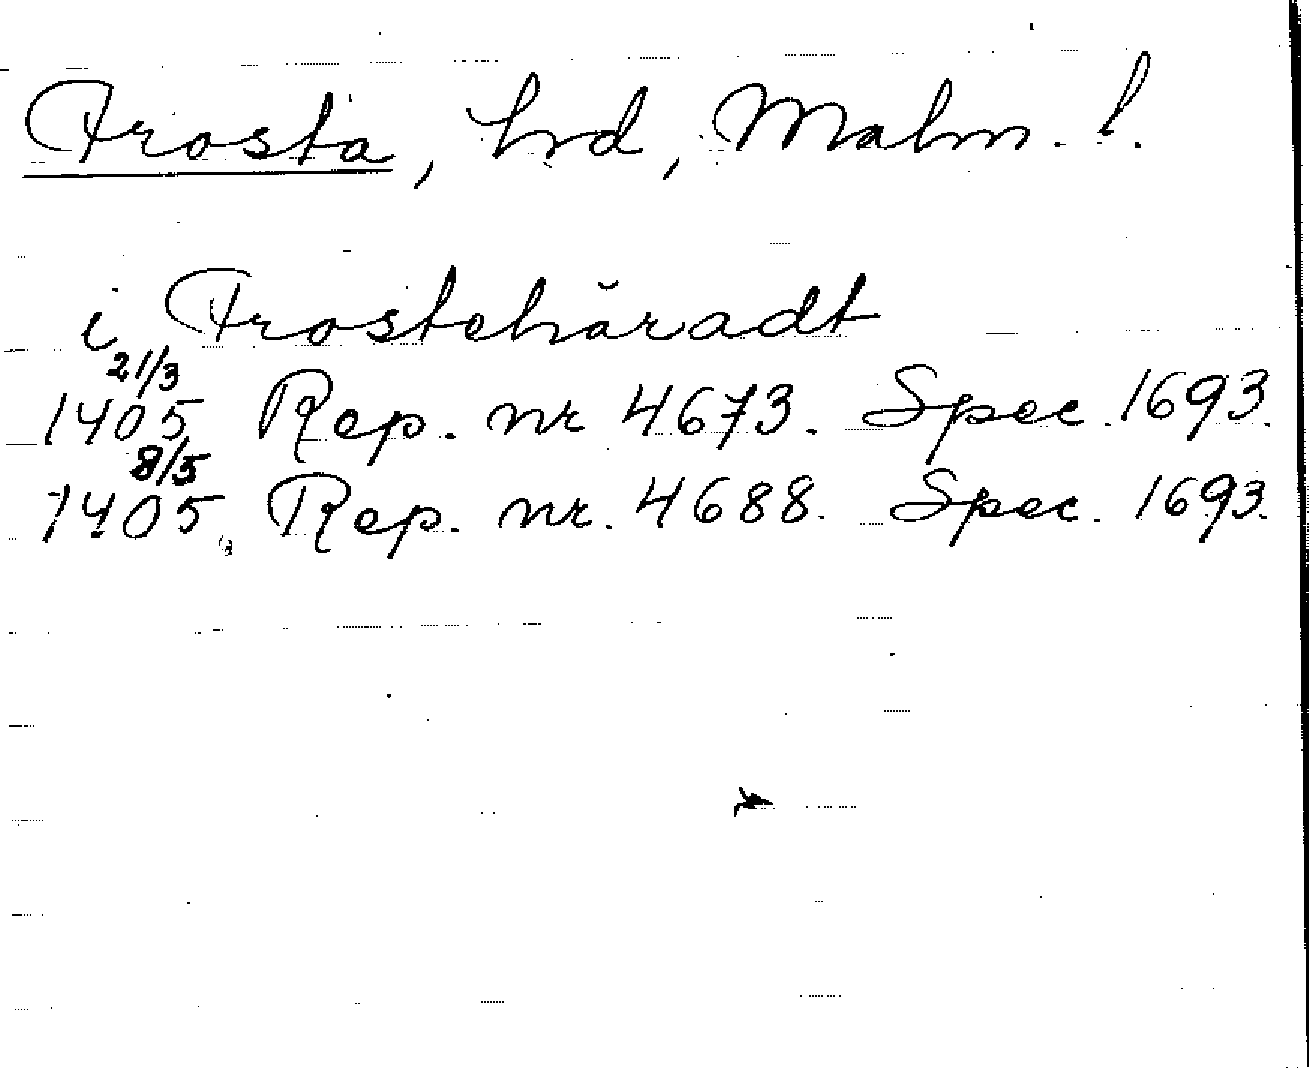 Frosta, hrd, Malm. l.
i Frostehäradt
21/3
1405 Rep. nr 4673. Spec. 1693.
8/5
1405, Rep. nr. 4688. Spec. 1693.